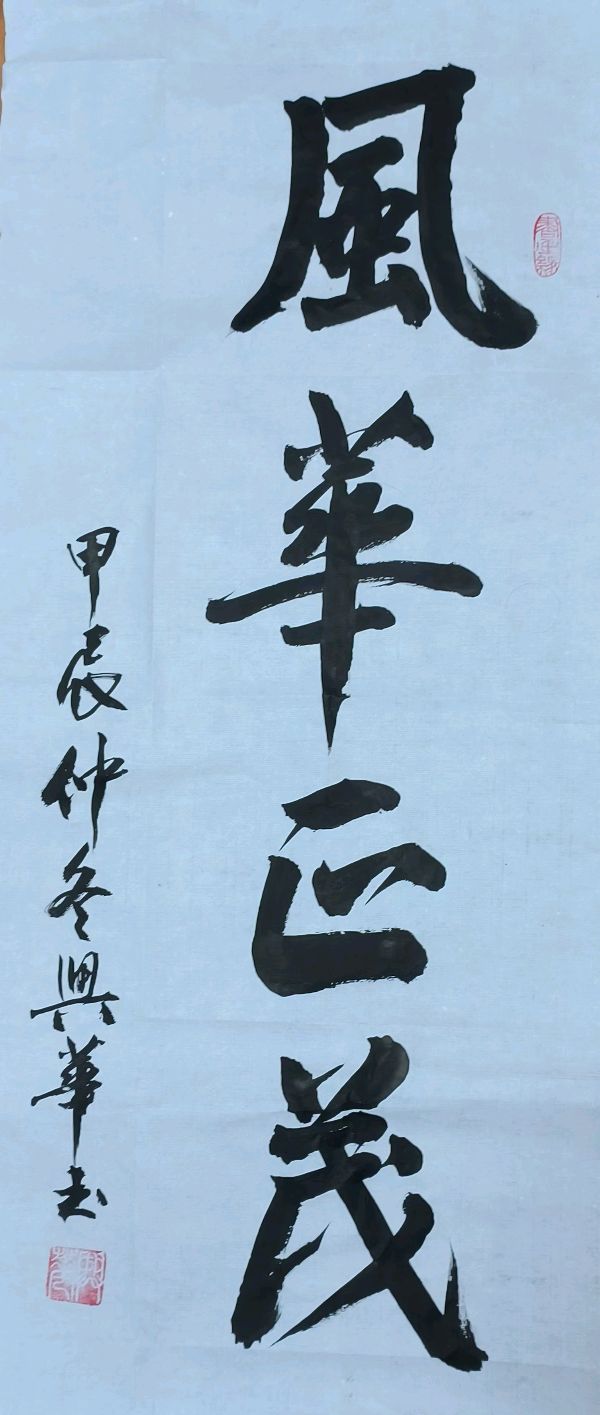 風華正茂
甲辰仲冬興華书